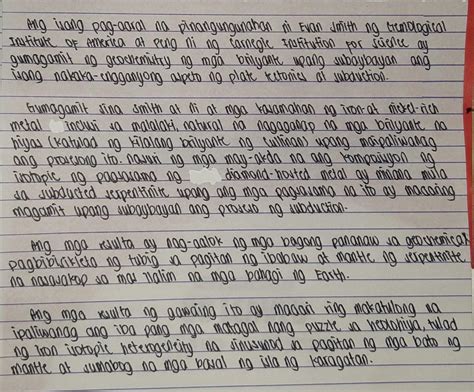 Ang isang pag-aaral na pinangungunahan ni Evan Smith ng Gemological
Institute of America at Peng Ni ng Carnegie Institution for Science ay
gumagamit ng geochemistry ng mga brilyante upang subaybayan ang
isang nakaka-engganyong aspeto ng plate tectonics at subduction.
Gumagamit sina Smith at Ni at mga kasamahan ng iron-at nickel-rich
metal inclusi sa malalaki, natural na nagaganap na mga brilyante na
piyas (katulad ng kilalang brilyante ng Cullinan) upang maipaliwanag
ang prosesong ito. nasuri ng mga may-akda na ang komposisyon ng
isotopic ng pagsasama ng diamond-hosted metal ay minana mula
sa subducted serpentinite upang ang mga pagsasama na ito ay maaaring
magamit upang subaybayan ang proseso ng subduction.
Ang mga resulta ay nag-aalok ng mga bagong pananaw sa geochemical
ng tubig sa pagitan ng ibabaw at mantle ng serpentinite
na nasasakop sa mas ilalim na mga bahagi ng Earth.
Ang mga resulta ng gawaing ito ay maaari ring makatulong sa
ipaliwanag ang iba pang mga matagal nang puzzle sa heolohiya, tulad
ng iron isotopic heterogeneity na sinusunod sa pagitan ng mga bato ng
mantle at sumabog na mga basal ng isla ng karagatan.